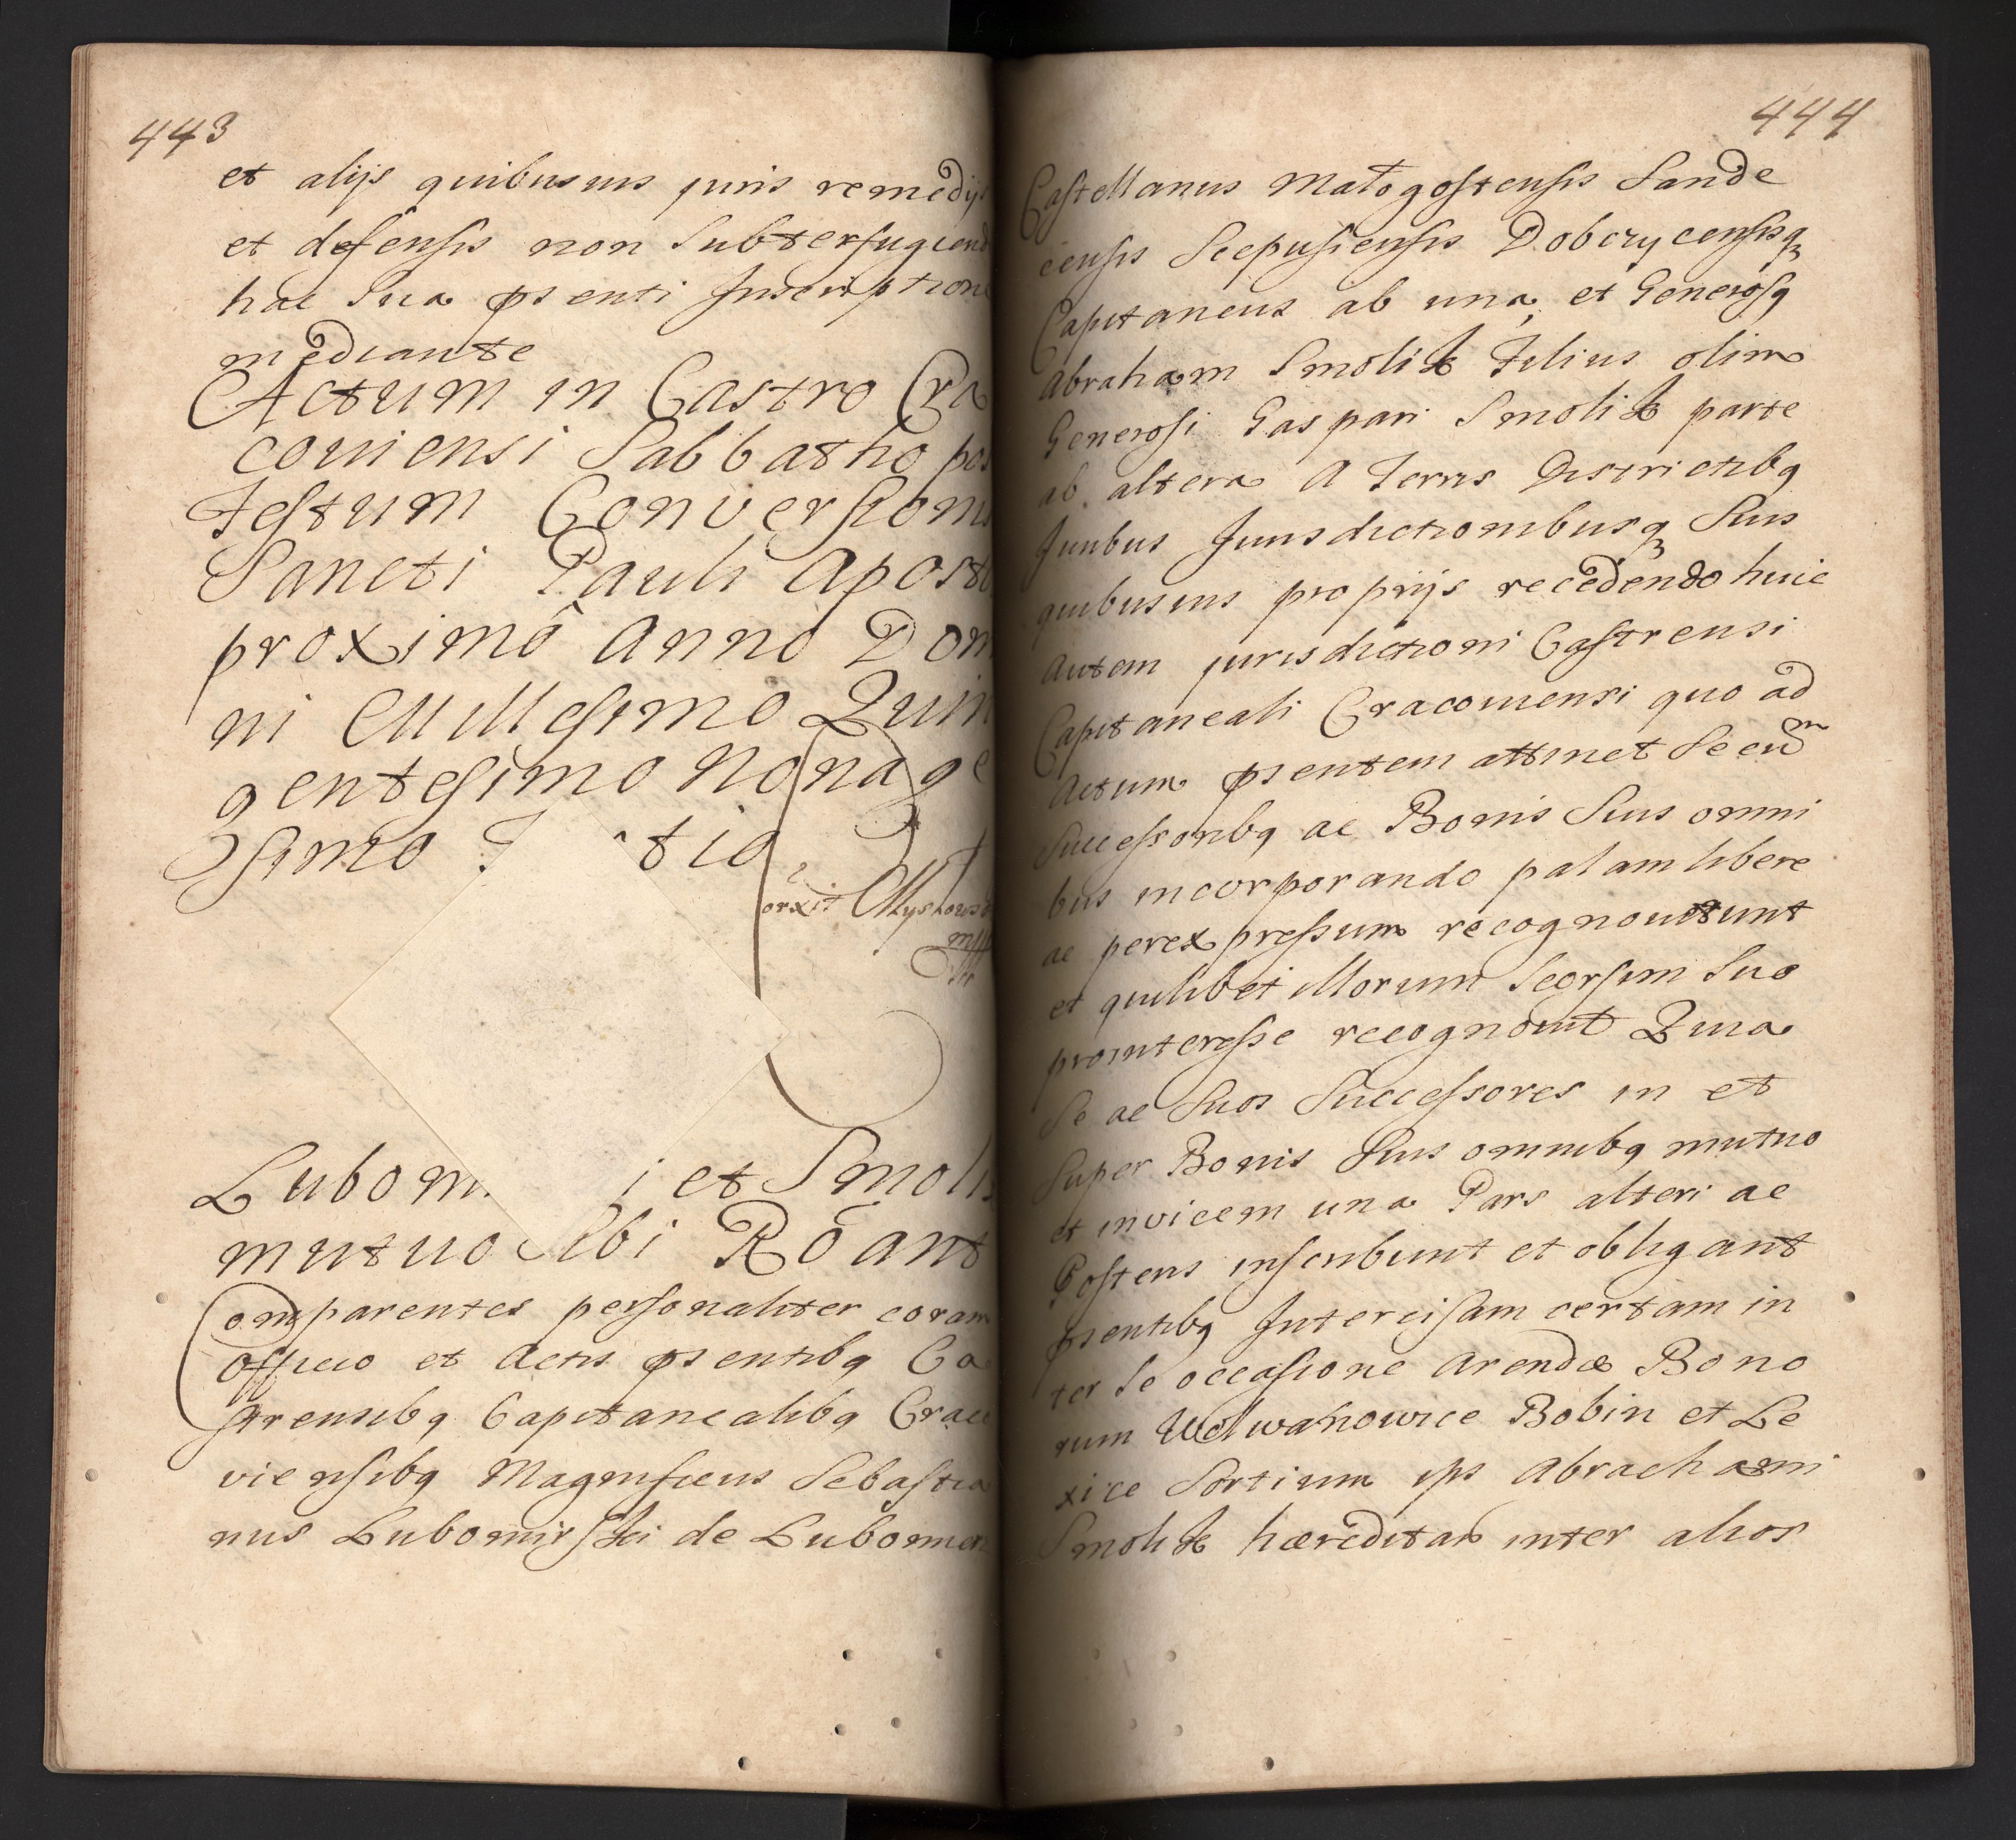 443
et alijs quibusuis juris remedijs
et defensis non Subterfugiend
hac Sua pſenti Inscription
mediante
Actum in Castro Cra
couiensi Sabbatho pos
Festum Conversionis
Sancti Pauli Aposto
proximo Anno Dom
ni Millesimo Quin
gentesimo Nonage
Simo tio
orxit Myszkowsk
Lubom i et Smolik
mutuo Sibi Roãnt
Comparentes personaliter coram
Officio et Actis pſentibq Ca
strensibq Capitanealibq Craco
viensibq Magnificus Sebastia
nus Lubomirski de Lubomierz
444
Castellanus Małogostensis Sande
censis Scepusiensis Dobczycensisq
Capitaneus ab una, et Generosq
Abraham Smolik Filius olim
Generosi Gaspari Smolik parte
ab altera A Terris Districtibq
Juribus Jurisdictionibusq Suis
quibusuis proprijs recedendo huic
autem jurisdictioni Castrensi
Capitaneali Cracouiensi quo ad
Actum pſentem attinet Se cum
Successoribq ac Bonis Suis omni
bus incorporando palam libere
ac perexpressum recognouerunt
et quilibet illorum Seorsim Suo
prointeresse recognouit Quia
Se ac Suos Successores in et
Super Bonis Suis omnibq mutuo
et invicem una Pars alteri ac
Posteris inscribunt et obligant
pſentibq Intercisam certam in
ter Se occasione Arendæ Bono
rum Wolwanowice Bobin et Le
xice Sortium ips Abrachami
Smolik hæreditar inter alios